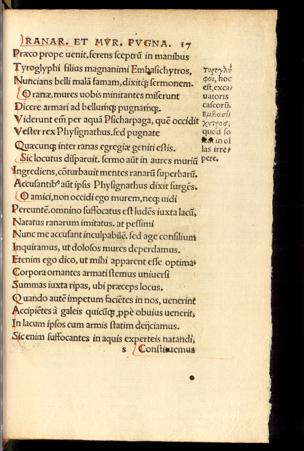 RANAR. ET MVR. PVGNA. 17
Præco prope uenit, ferens sceptrū in manibus
Tyroglyphi filius magnanimi Embasichytros,
Nuncians belli malā famam, dixitq; sermonem.
O ranæ, mures uobis minitantes miserunt
Dicere armari ad bellumq; pugnamq;.
Viderunt em̄ per aquā Psicharpaga, quē occidit
Vester rex Physignathus. sed pugnate
Quæcunq; inter ranas egregiæ geniti estis.
Sic locutus disparuit. sermo aūt in aures muriū
Ingrediens, cōturbauit mentes ranarū superbarū.
Accusantib⁹ aūt ipsis Physignathus dixit surgēs.
O amici, non occidi ego murem, neq; uidi
Percuntē. omnino suffocatus est ludēs iuxta lacū,
Natatus ranarum imitatus. at pessimi
Nunc me accusant inculpabilē. sed age consilium
Inquiramus, ut dolosos mures deperdamus.
Etenim ego dico, ut mihi apparent esse optima.
Corpora ornantes armati stemus uniuersi
Summas iuxta ripas, ubi præceps locus.
Quando autē impetum faciētes in nos, uenerint
Accipiētes à galeis quicūq; ꝓpè obuius uenerit,
In lacum ipsos cum armis statim deijciamus.
Sic enim suffocantes in aquis experteis natandi,
s Constituemus
τυρογλύ
φος, hoc
est, excau
uatoris
caseorū.
ἐμβασίχυτρος,
quod so
in ol
las irre
pere.